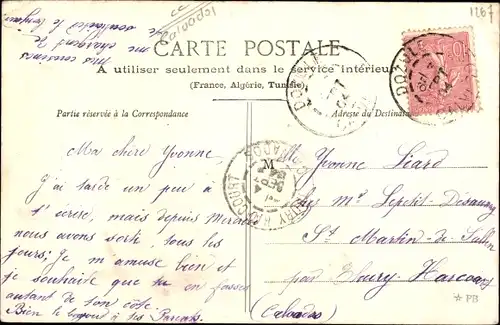 1267
Calvados
CARTE POSTALE
A utiliser seulement dans le service intérieur
(France, Algérie, Tunisie)
Partie réservée à la Correspondance
Adresse du Destinataire
Ma chère Yvonne,
J'ai tardé un peu à
t'écrire, mais depuis
nous avons sorti, tous les
jours; Je m'amuse bien et
je souhaite que tu en fasses
autant de ton côté.
Bien le bonjour à tes Parents.
Mes cousines
me chargent de
te souhaiter le bonjour
M
Yvonne Liard
chez Mr Lepetit-Desaunay
St Martin-de-Sallen
par Thury Harcourt
(Calvados)
DOZULÉ
THURY HARCOURT
CALVADOS
PB